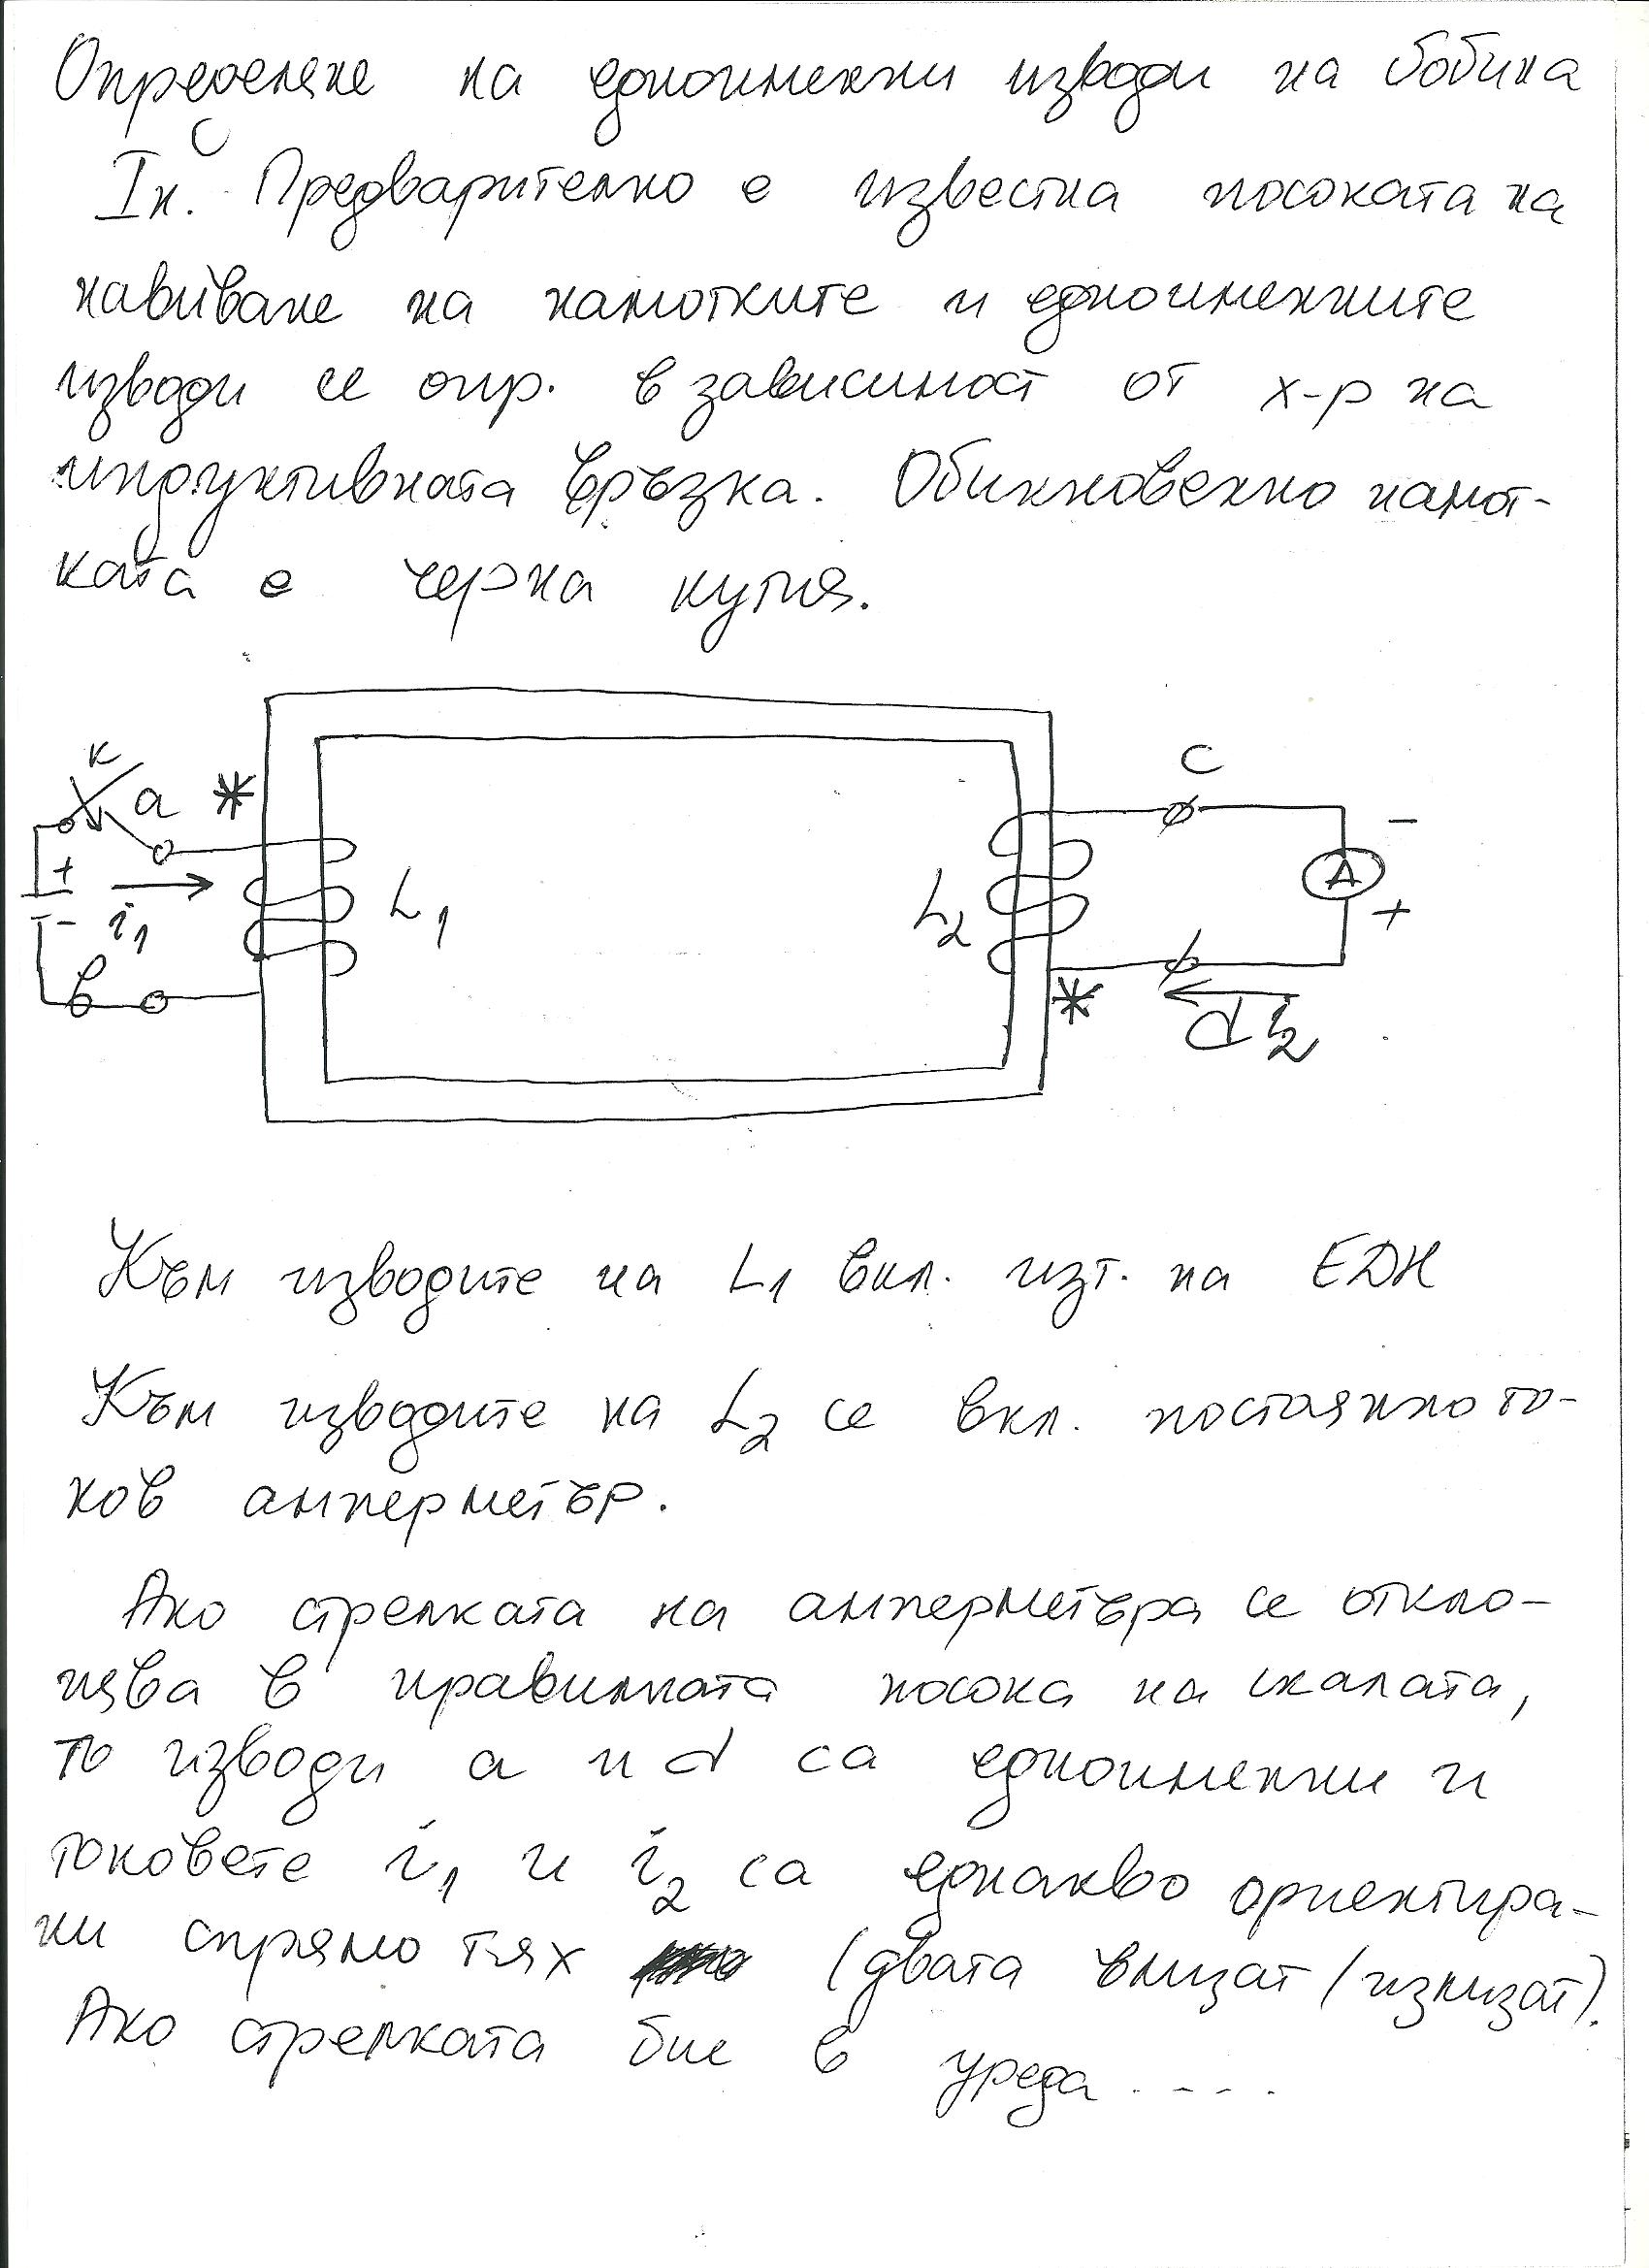 Определяне на едноименни изводи на бобина
Iн. Предварително е известна посоката на
навиване на намотките и едноименните
изводи се опр. в зависимост от х-р на
индуктивната връзка. Обикновенно намот-
ката е черна кутия.
к
a *
c
-
+
i1
L1
L2
A
+
-
в
*
d i2
Към изводите на L1 вкл. изт. на ЕДН
Към изводите на L2 се вкл. постоянното-
ков амперметър.
Ако стрелката на амперметъра се откло-
нява в правилната посока на скалата,
то изводи a и d са едноименни и
токовете i1 и i2 са еднакво ориентира-
ни спрямо тях (двата влизат/излизат).
Ако стрелката бие в уреда .....